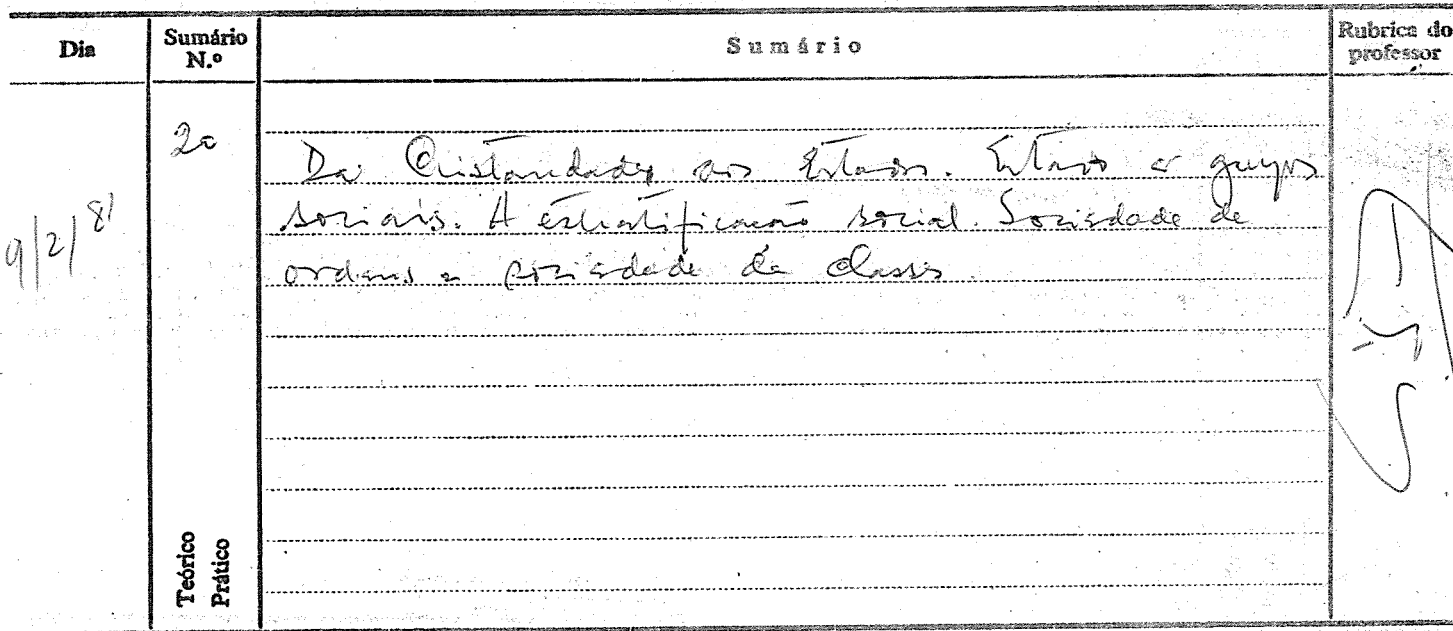 Dia Sumário N.º Sumário Rubrica do professor
9/2/81 20 Da Cristandade aos Estados. Estado e grupos
sociais. A estratificação social. Sociedade de
ordens e sociedade de classes.
Teórico
Prático